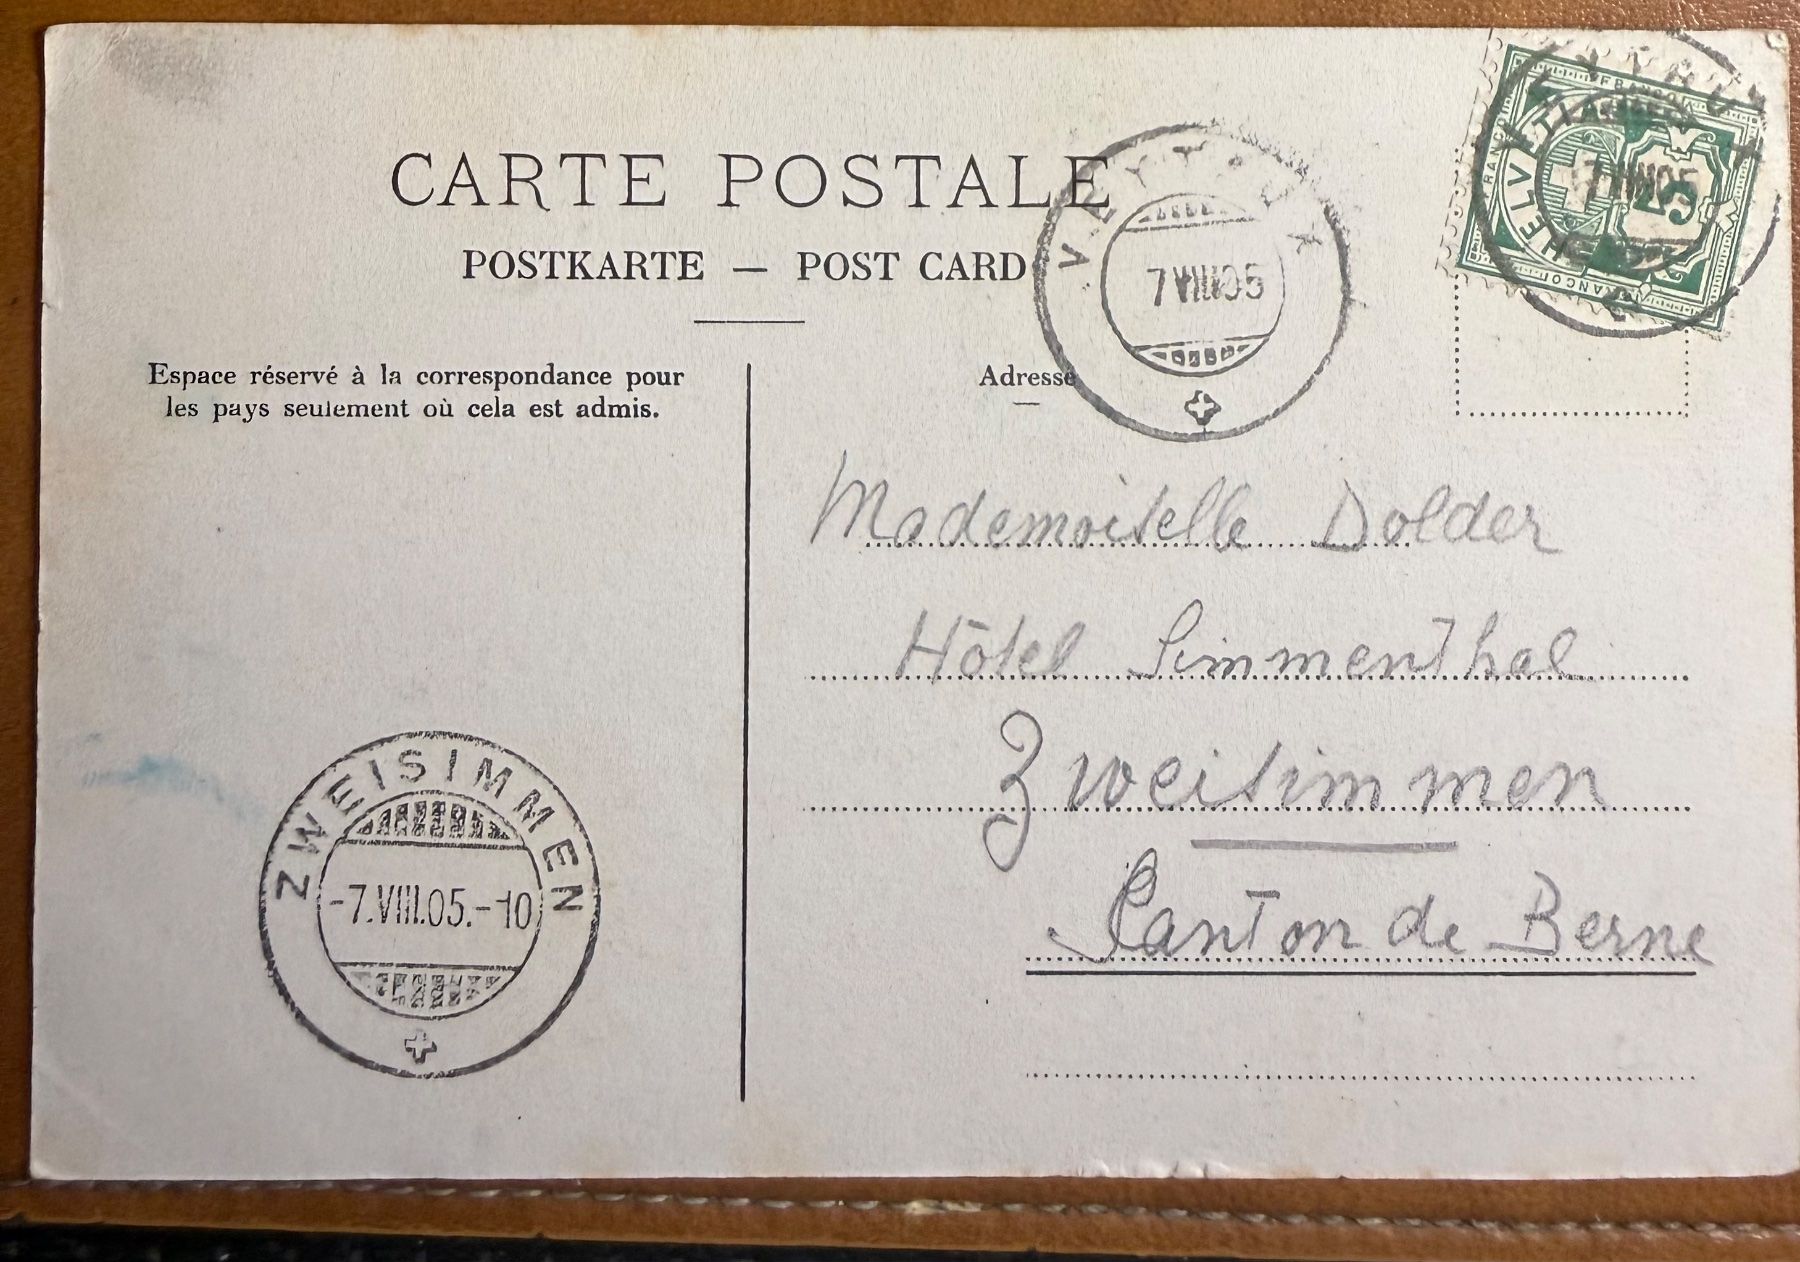 CARTE POSTALE
POSTKARTE — POST CARD
Espace réservé à la correspondance pour
les pays seulement où cela est admis.
Adresse
VEYTAUX
7 VIII 05
FRANCO
HELVETIA
5
FRANCO
FRANCO
7 VIII 05
Mademoiselle Dolder
Hôtel Simmenthal
Zweisimmen
Canton de Berne
ZWEISIMMEN
-7.VIII.05.-10